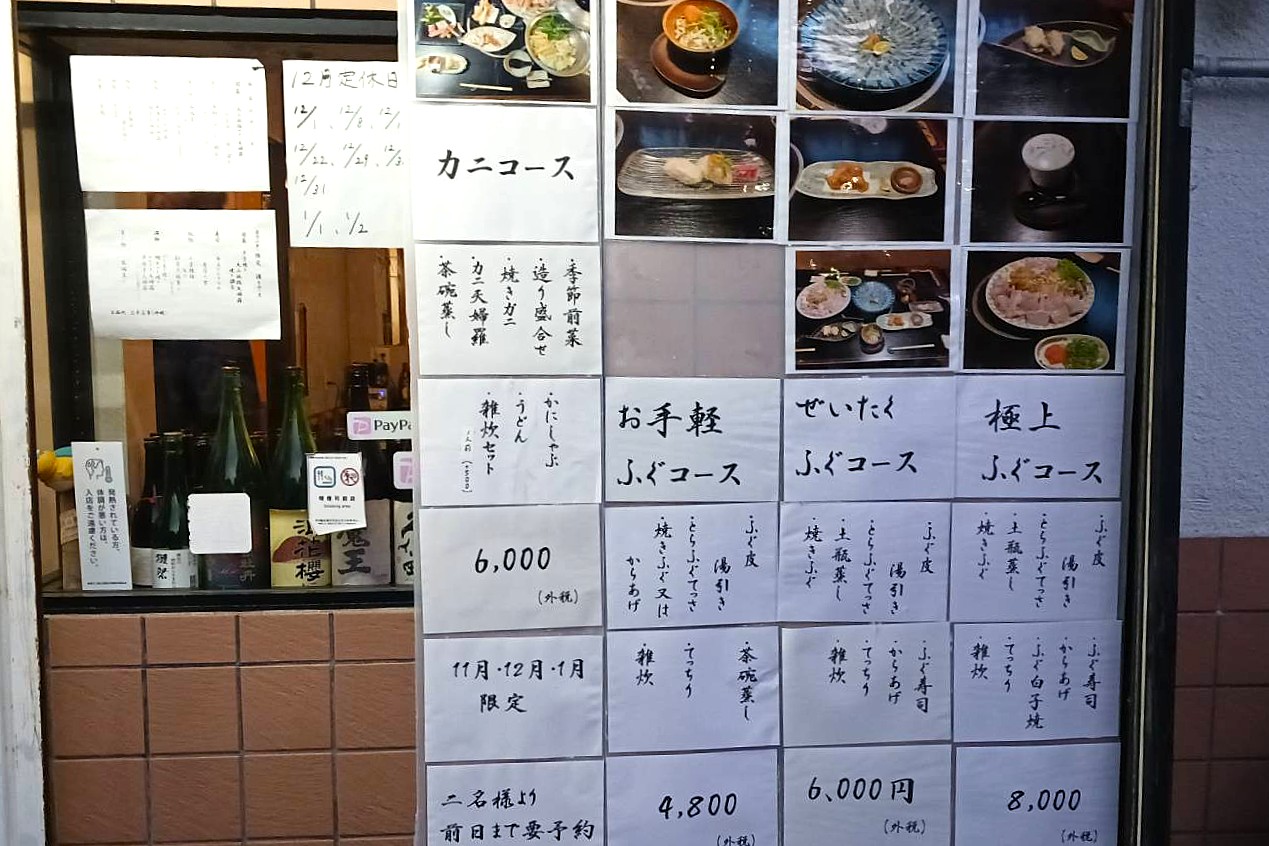 12月定休日
12/1、12/8、
12/22、12/29、
12/31
1/1、1/2
発熱されている方、
体調が悪い方は、
入店をご遠慮ください。
PayPa
喫煙可能店
Smoking area
魔王
カニコース
・季節前菜
・造り盛合せ
・焼きガニ
・カニ天婦羅
・茶碗蒸し
・かにしゃぶ
・うどん
・雑炊セット
6,000
(外税)
11月・12月・1月
限定
二名様より
前日まで要予約
お手軽
ふぐコース
・ふぐ皮
湯引き
・とらふぐてっさ
・焼きふぐ又は
からあげ
・茶碗蒸し
・てっちり
・雑炊
4,800
(外税)
ぜいたく
ふぐコース
・ふぐ皮
湯引き
・とらふぐてっさ
・土瓶蒸し
・焼きふぐ
・ふぐ寿司
・からあげ
・てっちり
・雑炊
6,000円
(外税)
極上
ふぐコース
・ふぐ皮
湯引き
・とらふぐてっさ
・土瓶蒸し
・焼きふぐ
・ふぐ寿司
・からあげ
・ふぐ白子焼
・てっちり
・雑炊
8,000
(外税)